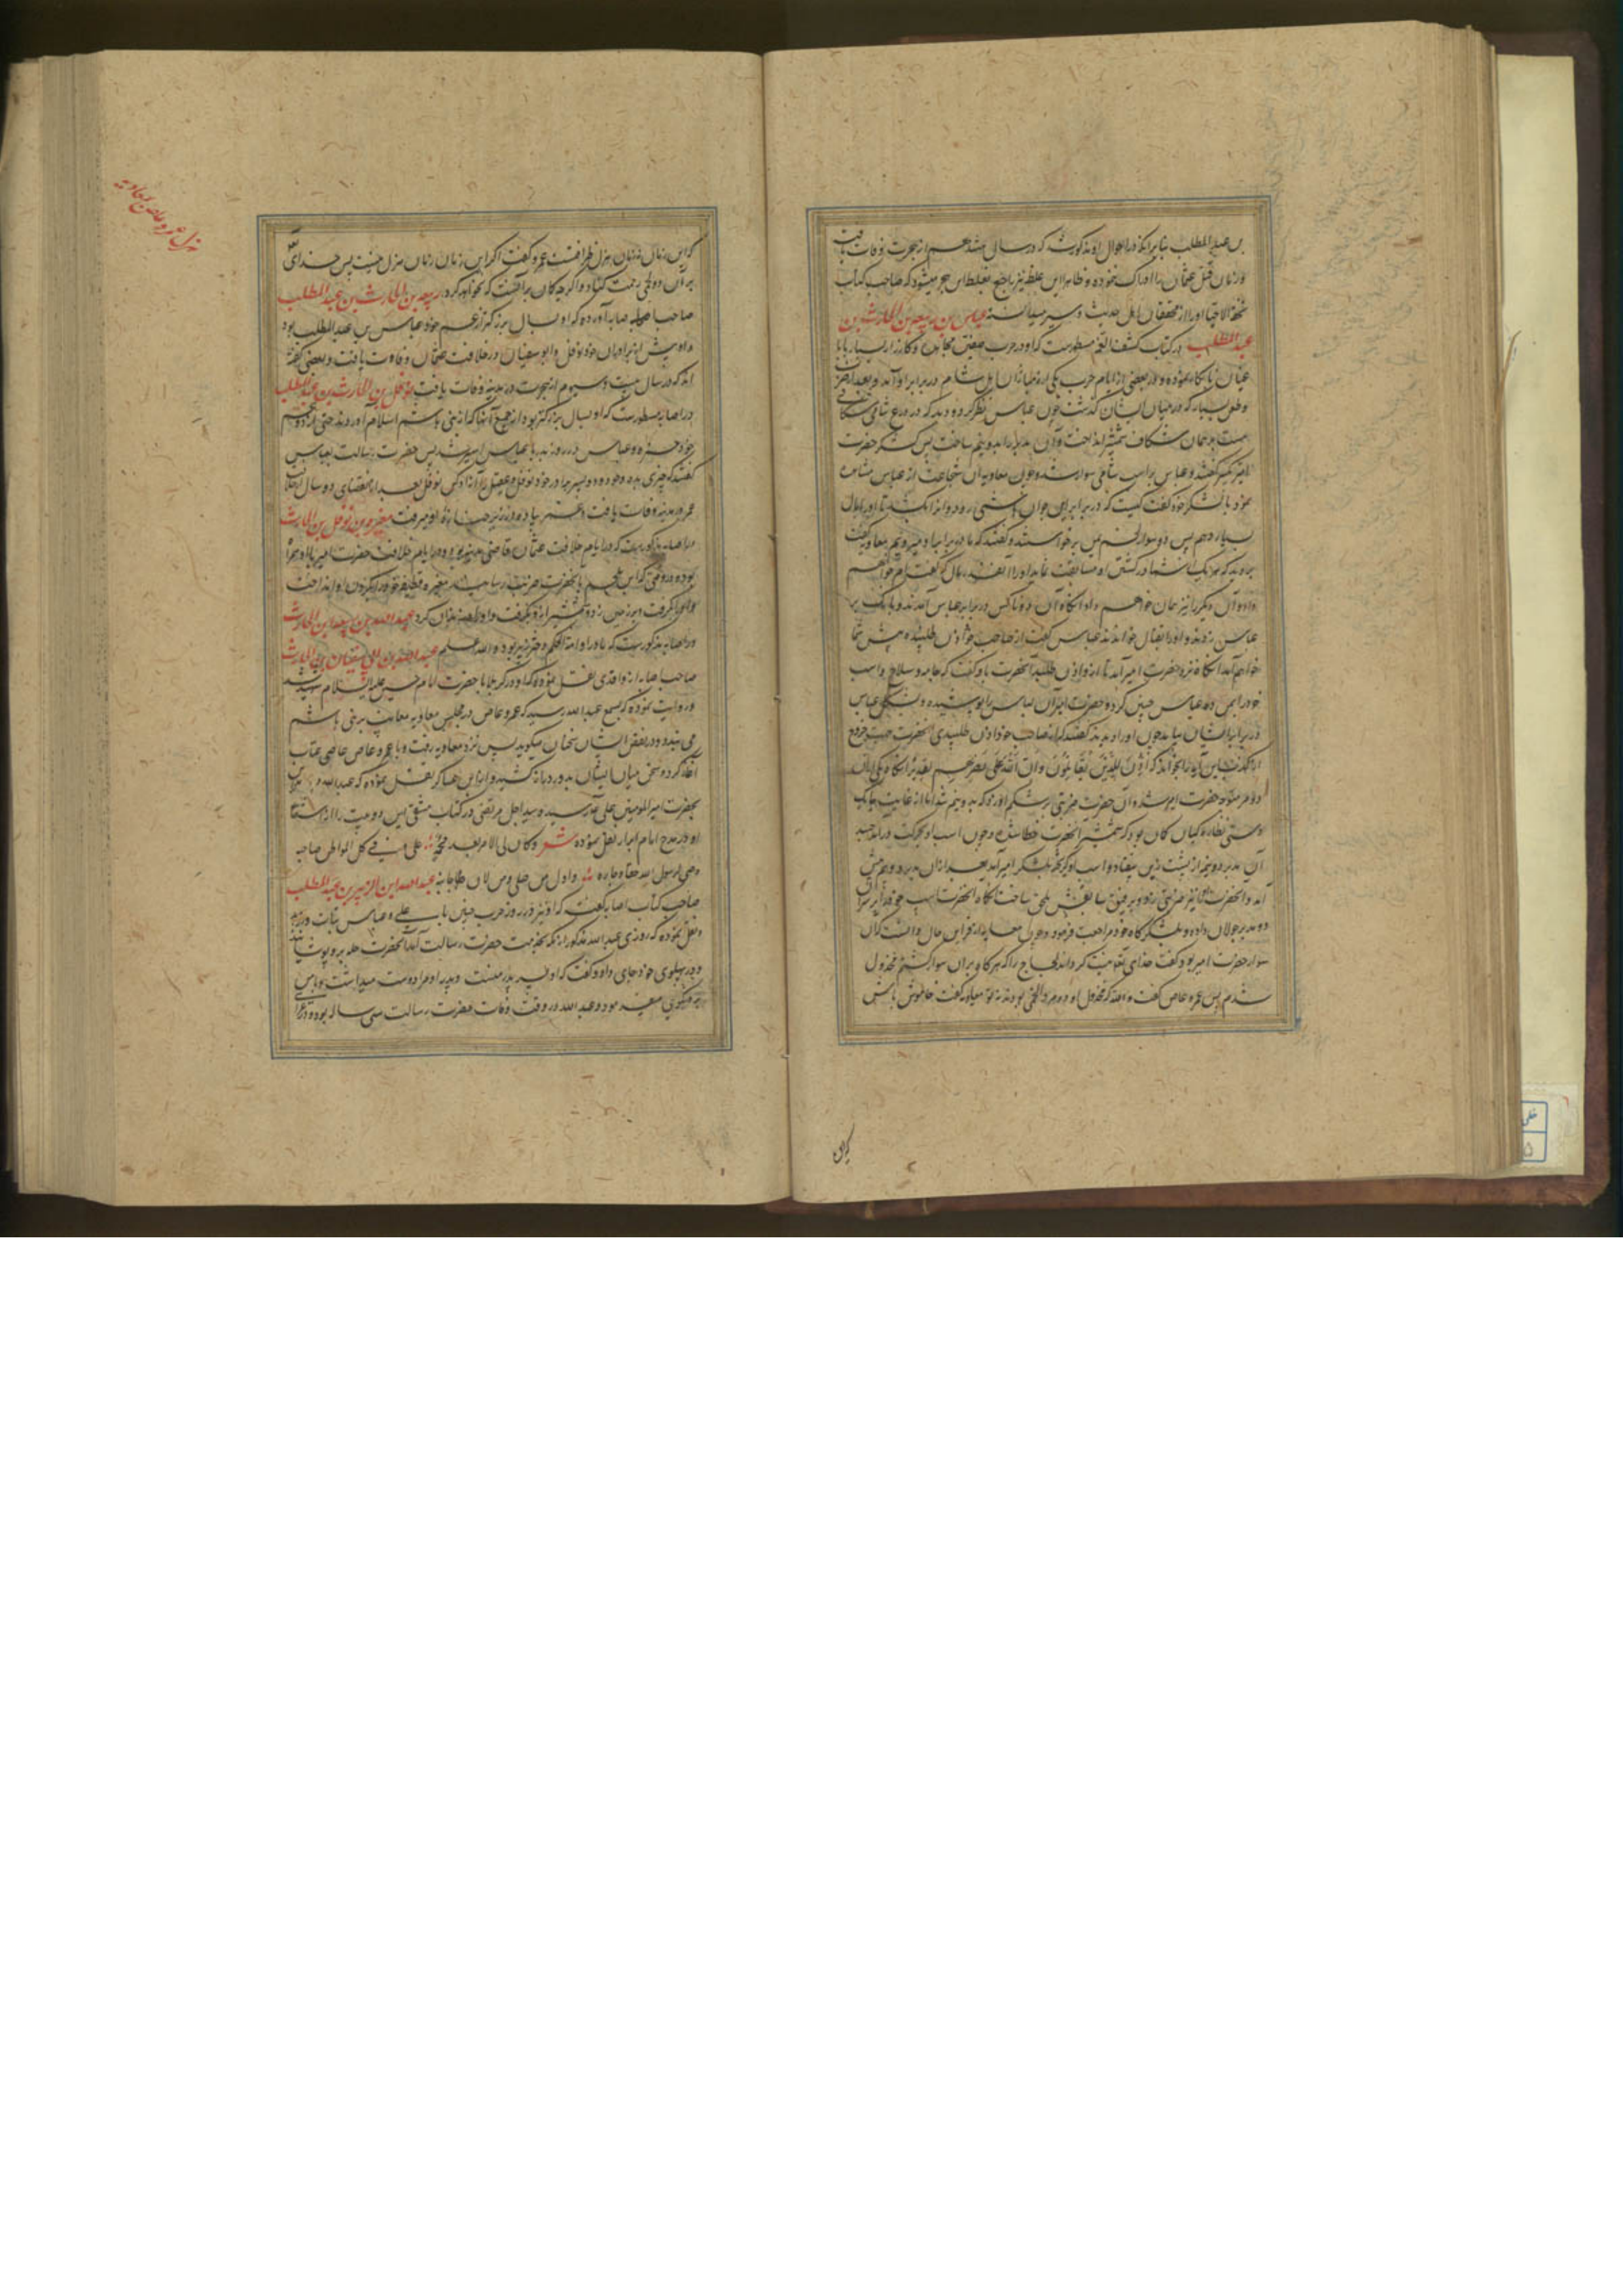 بن عبد المطلب بنا بر آنکه در احوال او مذکور شد که در سال هشتم از هجرت وفات یافت
و زمان قتل عثمان را ادراک ننموده و ظاهرا این غلط نیز راجع بغلط ابن حجر میشود که صاحب کتاب
تحفة الاحبا او را از محققان اهل حدیث و سیر میدانسته عباس بن ربیعة بن الحارث بن
عبد المطلب در کتاب کشف الغمه مسطورست که او در حرب صفین
در بعضی از ایام حرب یکی از مبارزان اهل شام در برابر او آمد و بعد از
بسیار که در میان ایشان گذشت چون عباس نظر کرد و دید که در درع شامی شکافی
هست بر همان شکاف شمشیر انداخت و آن بدبخت را بدو نیم ساخت پس لشکر حضرت
امیر تکبیر گفتند و عباس بر اسب شامی سوار شد و چون معاویه آن شجاعت از عباس مشاهده
نمود با لشکر خود گفت کیست که در برابر این جوان هاشمی رود و او را بکشد تا او را مال
بسیار دهم پس دو سوار لخمی برخواستند و گفتند که ما در برابر او میرویم معاویه گفت
بروید که هر یک از شما در کشتن او مسابقت نماید او را آنقدر مال که گفته‌ام خواهم
داد و آن دیگر را نیز همان خواهم داد آنگاه آن دو ناکس در برابر عباس آمدند و بانگ بر
عباس زدند و او را بقتال خواندند عباس گفت از صاحب خود اذن طلبیده پیش شما
خواهم آمد آنگاه نزد حضرت امیر آمد تا ازو اذن طلبد آنحضرت باو گفت که جامه و سلاح و اسب
خود را بمن ده عباس چنین کرد و حضرت امیر آن لباس را پوشیده و بشکل عباس
در برابر ایشان بیامد چون او را دیدند گفتند که از صاحب خود اذن طلبیدی آنحضرت
این آیه را بخواند که اذن للذین یقاتلون و ان الله علی نصرهم لقدیر آنگاه یکی از آن
دو متوجه حضرت امیر شد و آن حضرت ضربتی بر شکم او زد که بدو نیم شد اما از غایت
نظاره کیان گمان بود که شمشیر آنحضرت خطا شد و چون اسب او بحرکت درآمد جسد
آن بدبر دو نیمه از پشت زین بیفتاد و اسب او گریخته بلشکر امیر آمد بعد از آن
آمد و آنحضرت او را نیز ضربتی زد و برفیق سابقش ملحق ساخت آنگاه آنحضرت اسب خود را بر سر آن
دو بدبر جولان داده و بلشکرگاه خود مراجعت فرمود و چون معاویه از این حال دانست که آن
سوار حضرت امیر بود گفت خدای تعالی لجاج را که هرگاه بر آن سوار گشتم مخذول
شدم پس عمرو عاص گفت والله که مخذول آن دو مرد لخمی بودند نه تو معاویه گفت خاموش باش
که این
که این زمان نه زمان هزل و ظرافتست عمرو گفت اگر این زمان زمان هزل نیست پس خدای
بر آن دو لخمی رحمت کناد و اگر چه گمان من آنست که نخواهد کرد ربیعة بن الحارث بن عبد المطلب
صاحب اصابه آورده که او بسال بزرگتر از عم خود عباس بن عبد المطلب بود
و او پیش از برادران خود نوفل و ابو سفیان در خلافت عثمان وفات یافت و بعضی گفته
اند که در سال بیست و سیوم از هجرت در مدینه وفات یافت نوفل بن الحارث بن عبد المطلب
در اصابه مسطورست که او بسال بزرگتر بود از جمیع آنها که از بنی هاشم اسلام آوردند حتی از دو عم
خود حمزه و عباس و در روز بدر با عباس اسیر شد پس حضرت رسالت بعباس
گفتند که چیزی بده و خود و دو پسر برادر خود نوفل و عقیل را آزاد کن نوفل بعد از انقضای دو سال از خلافت
عمر در مدینه وفات یافت و عمر پیاده در زیر جنازهٔ او میرفت مغیرة بن نوفل بن الحارث
در اصابه مذکورست که در ایام خلافت عثمان قاضی مدینه بود و در ایام خلافت حضرت امیر با او همراه
بوده و وقتی که ابن ملجم بآنحضرت ضربت رسانید مغیره قطیفه خود را بگردن او انداخت
و او را گرفت و بر زمین زد و شمشیر از او بگرفت و او را بند و زندان کرد عبد الله بن ربیعة بن الحارث
در اصابه مذکورست که مادر او ام الحکم دختر زبیر بود والله اعلم عبد الله بن ابی سفیان بن الحارث
صاحب اصابه از واقدی نقل نموده که او در کربلا با حضرت امام حسین علیه السلام شهید شد
و روایت نموده که بسمع عبد الله رسید که عمرو عاص در مجلس معاویه معایب بنی هاشم
می شمرد و در نقص ایشان سخنان میگوید پس نزد معاویه رفت و با عمرو عاص عاصی عتاب
آغاز کرد و سخن میان ایشان بدور و دراز کشید و از ابن عساکر نقل نموده که عبد الله
بحضرت امیر المومنین علی میرسید و سید اجل مرتضی در کتاب این دو بیت را از اشعار
او در مدح امام ابرار نقل نموده شعر و کان ولی الامر بعد محمد علی و فی کل المواطن صاحبه
وصی رسول الله حقا و جاره و اول من صلی و من لان جانبه عبد الله بن الزبیر بن عبد المطلب
صاحب کتاب اصابه گفته که او نیز در روز حرب حنین با علی و عباس ثبات ورزید
و نقل نموده که روزی عبد الله مذکور بخدمت حضرت رسالت آمد آنحضرت حله برو پوشانید
و در پهلوی خود جای داد و گفت که او پسر پدر منست و پدر او مرا دوست میداشت و با من
نیکوئی مینمود و عبد الله در وقت وفات حضرت رسالت سی ساله بود
هزل عمرو عاص با معاویه